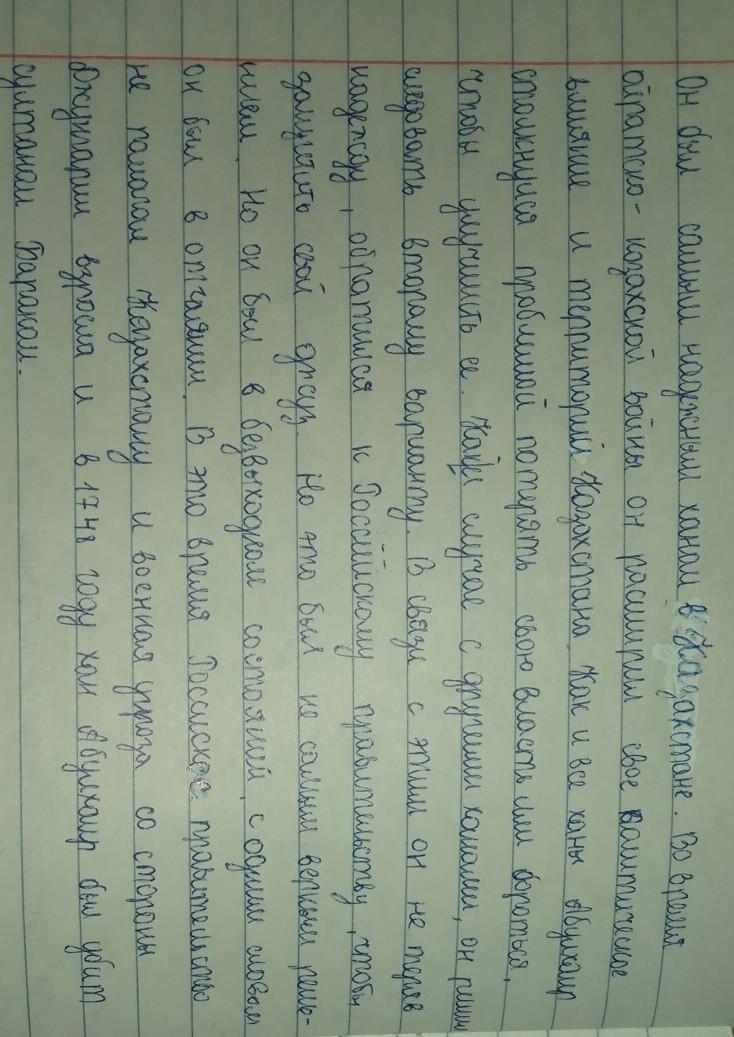 Он был самым надежным ханом в Казахстане. Во время
ойратско-казахской войны он расширил свое политическое
влияние и территорий Казахстана. Как и все ханы Абулхаир
столкнулся проблемой потерять свою власть или бороться,
чтобы улучшить ее. Как и случае с другими ханами, он решил
следовать второму варианту. В связи с этим он не теряв
надежду, обратился к Российскому правительству, чтобы
защитить свой джуз. Но это был не самым верным реше-
нием. Но он был в безвыходном состояний, с одним словом
он был в отчаянии. В это время Российское правительство
не помогал Казахстану и военная угроза со стороны
Джунгарии взросла и в 1748 году хан Абулхаир был убит
султаном Бараком.